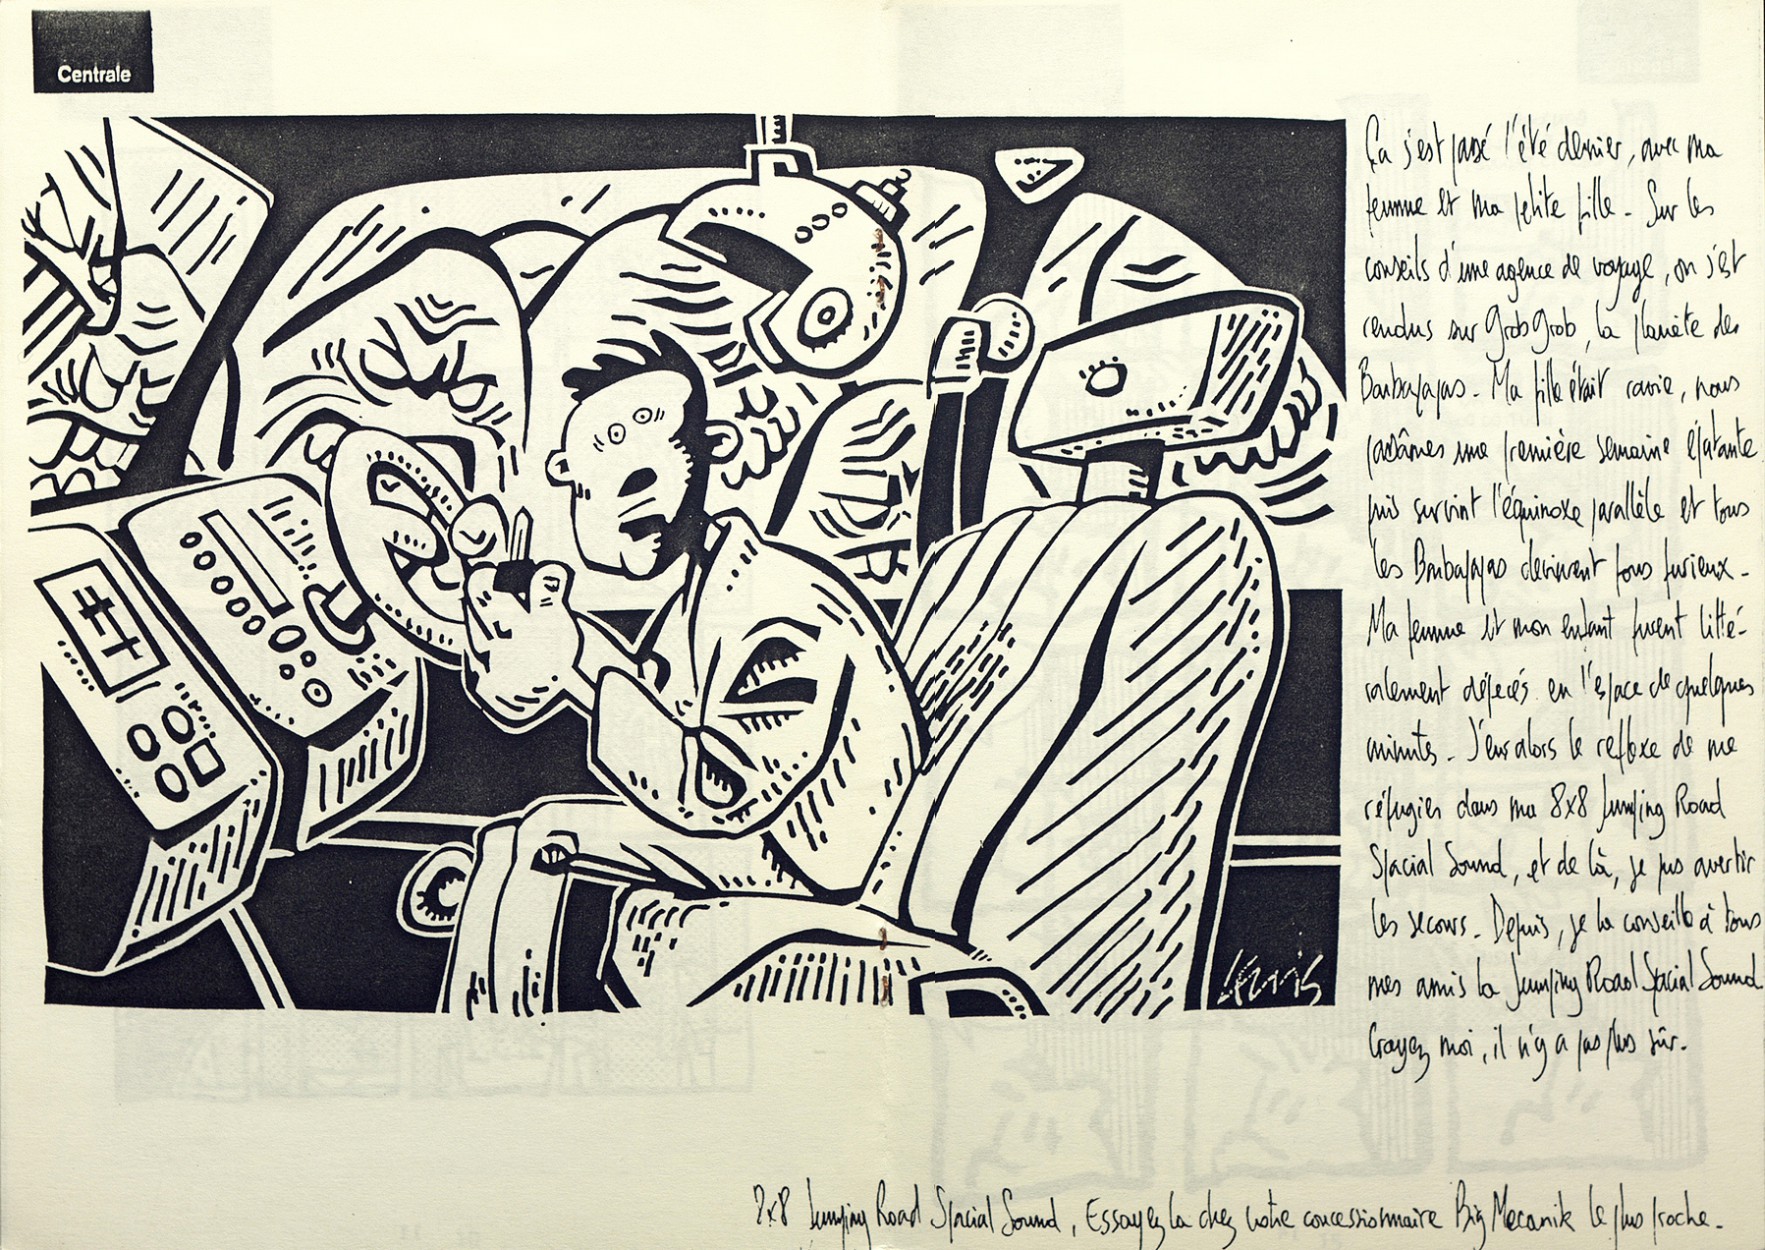 Centrale
Ça s'est passé l'été dernier, avec ma
femme et ma petite fille - Sur les
conseils d'une agence de voyage, on s'est
rendus sur GrobGrob, la planète des
Barbapapas - Ma fille était ravie, nous
passâmes une première semaine épatante
puis survint l'équinoxe parallèle et tous
les Barbapapas devinrent fous furieux -
Ma femme et mon enfant furent litté-
ralement dépecés en l'espace de quelques
minutes - J'eus alors le reflexe de me
réfugier dans ma 8x8 Jumping Road
Spacial Sound, et de là, je pus avertir
les secours - Depuis, je la conseille à tous
mes amis la Jumping Road Spacial Sound
Croyez moi, il n'y a pas plus sûr -
8x8 Jumping Road Spacial Sound, Essayez la chez votre concessionnaire Big Mecanik le plus proche -